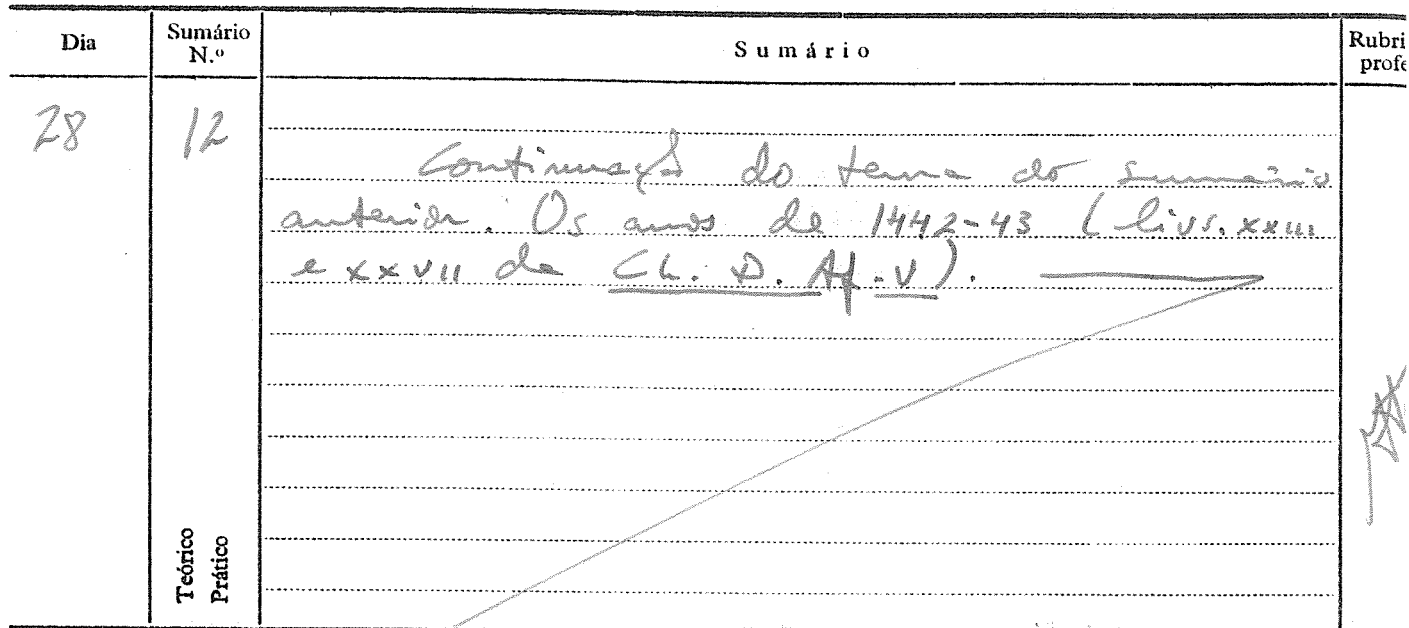 Dia
Sumário
N.º
Sumário
Rubri
profe
28
12
Continuação do tema do sumário
anterior. Os anos de 1442-43 (livs. XXIII
e XXVII da CL. D. Af. V).
Teórico
Prático